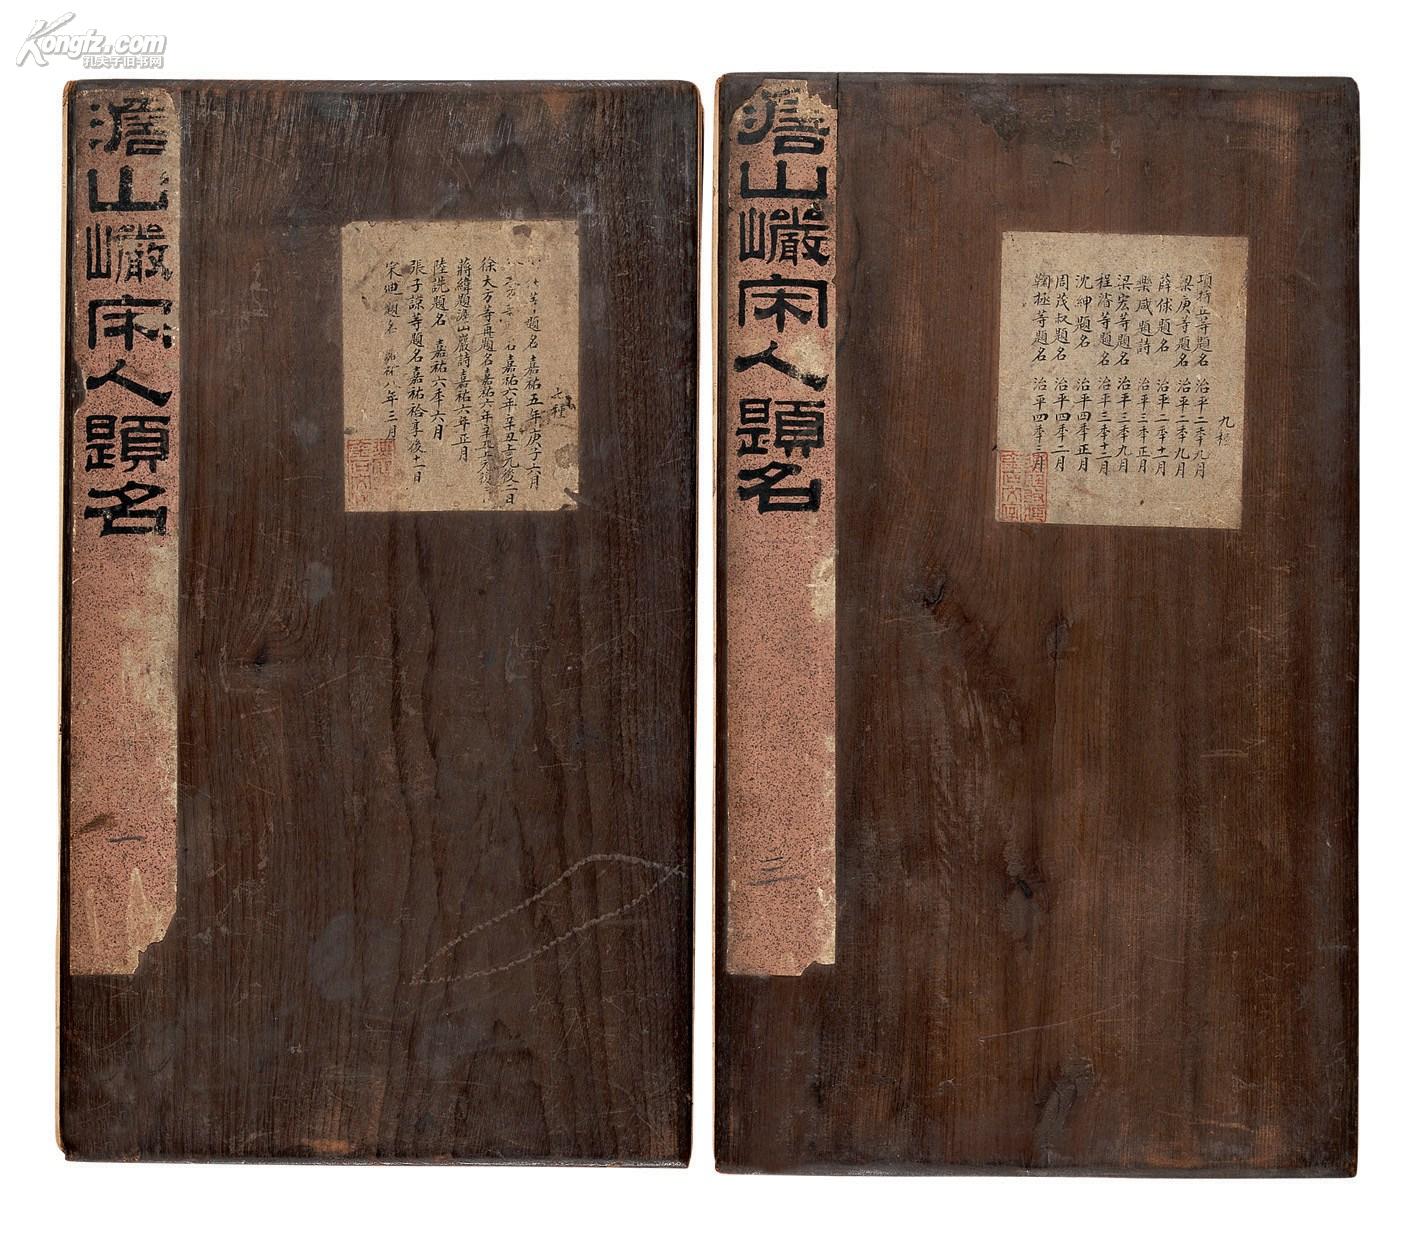 Kongfz.com
孔夫子旧书网
澹山巖宋人題名
一
七種
等題名 嘉祐五年庚子六月
嘉祐六年辛丑上元後二日
徐大方等再題名嘉祐六年辛丑上元後
蔣緯題澹山巖詩嘉祐六年正月
陸詵題名 嘉祐六年六月
張子諒等題名嘉祐祫享後十一日
宋迪題名 嘉祐八年三月
澹山巖宋人題名
三
九種
項 等題名 治平二季九月
梁庚等題名 治平二季九月
薛俅題名 治平二季十一月
樂咸題詩 治平三季正月
梁宏等題名 治平三季九月
程濬等題名 治平三季十二月
沈紳題名 治平四季正月
周茂叔題名 治平四季二月
鞠拯等題名 治平四季三月